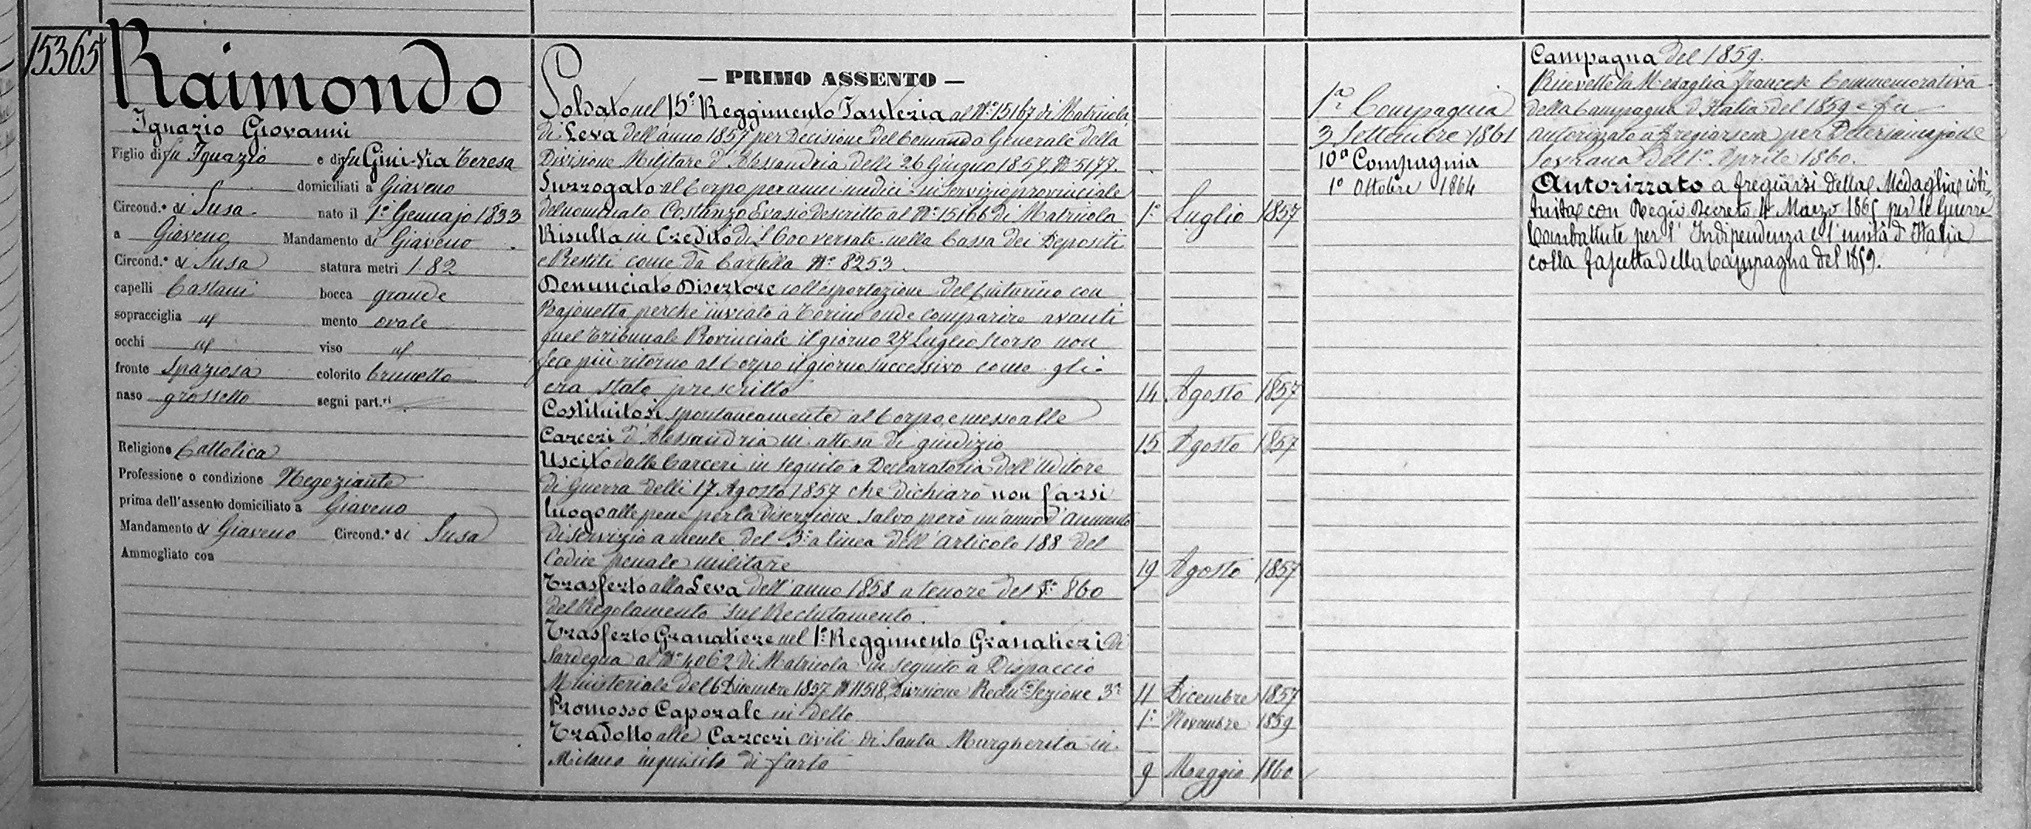 15365
Raimondo
Ignazio Giovanni
Figlio di fu Ignazio e di fu Gini-Via Teresa
domiciliati a Giaveno
Circond.º di Susa nato il 1º Gennajo 1833
a Giaveno Mandamento di Giaveno
Circond.º di Susa statura metri 1 82
capelli Castani bocca grande
sopracciglia " mento ovale
occhi " viso "
fronte Spaziosa colorito brunetto
naso grossetto segni part.ri
Religione Cattolica
Professione o condizione Negoziante
prima dell'assento domiciliato a Giaveno
Mandamento di Giaveno Circond.º di Susa
Ammogliato con
— PRIMO ASSENTO —
Soldato nel 15º Reggimento Fanteria al Nº 15167 di Matricola
di Leva dell'anno 1857 per Decisione del Comando Generale della
Divisione Militare d'Alessandria delli 26 Giugno 1857. Nº 5177.
Surrogato al Corpo per anni in servizio provinciale
del nominato Costanzo Evasio descritto al Nº 15166 di Matricola 1º Luglio 1857
Risulta in Credito di L versate nella Cassa dei Depositi
e Prestiti come da Cartella Nº 8253.
Denunciato Disertore coll'esportazione del cinturino con
Bajonetta perché inviato a Torino onde comparire avanti
quel Tribunale Provinciale il giorno 27 Luglio scorso non
fece più ritorno al Corpo il giorno successivo come gli
era stato prescritto 14 Agosto 1857
Costituitosi spontaneamente al Corpo, e messo alle
Carceri d'Alessandria in attesa di giudizio 15 Agosto 1857
Uscito dalle Carceri in seguito a Declaratoria dell'Uditore
di Guerra delli 17 Agosto 1857 che dichiarò non farsi
luogo alle pene per la diserzione salvo però un'anno d'aumento
di servizio a mente del 3º alinea dell'articolo 188 del
Codice penale militare 19 Agosto 1857
Trasferto alla Leva dell'anno 1858 a tenore del § 860
del Regolamento sul Reclutamento.
Trasferto Granatiere nel 1º Reggimento Granatieri di
Sardegna al Nº 4062 di Matricola in seguito a Dispaccio
Ministeriale del 6 Dicembre 1857 Nº 11518, Divisione Sezione 3ª 11 Dicembre 1857
Promosso Caporale in detto 1º Novembre 1859
Tradotto alle Carceri civili di Santa Margherita in
Milano inquisito di furto 9 Maggio 1860
1ª Compagnia
3 Settembre 1861
10ª Compagnia
1º Ottobre 1864
Campagna del 1859.
Ricevette la Medaglia francese Commemorativa
della Campagna d'Italia del 1859 e fu
autorizzato a fregiarsene per Determinazione
Sovrana dell'1º Aprile 1860.
Autorizzato a fregiarsi della Medaglia isti-
tuita con Regio Decreto 4 Marzo 1865 per le Guerre
Combattute per l'Indipendenza e l'unità d'Italia
colla fascetta della Campagna del 1859.